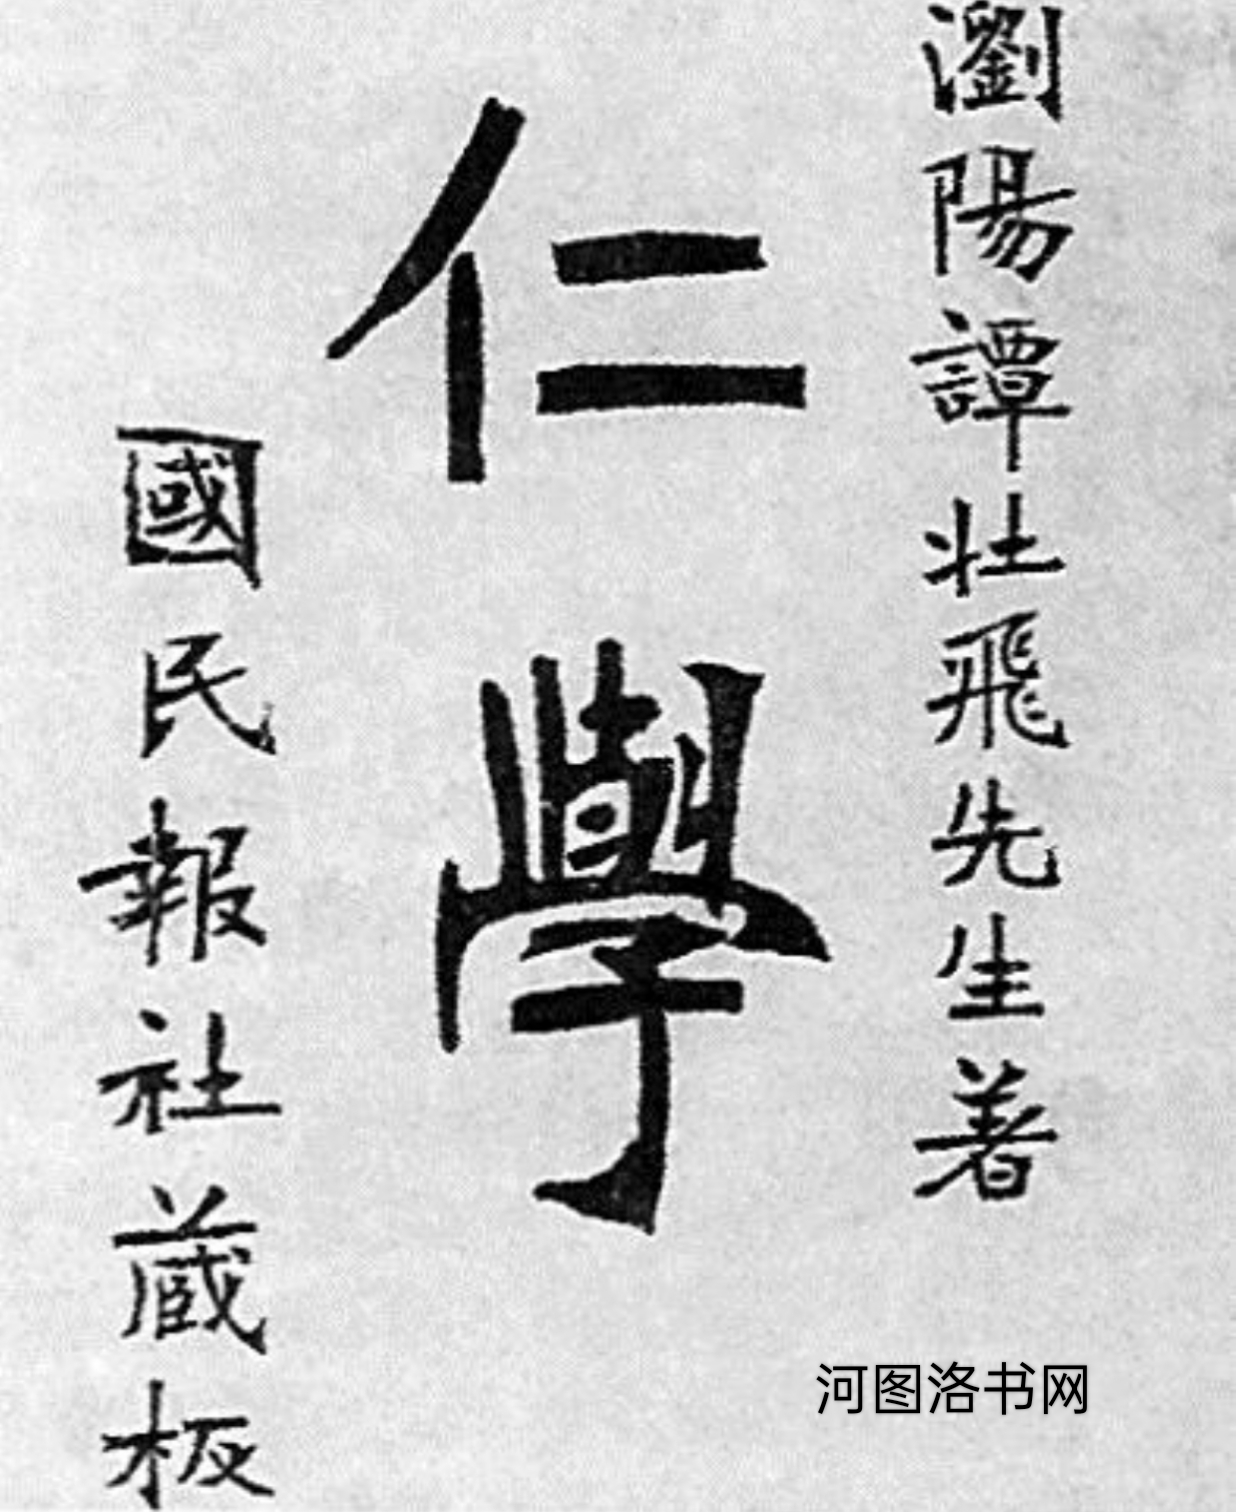 瀏陽譚壯飛先生著
仁學
國民報社蔵板
河图洛书网